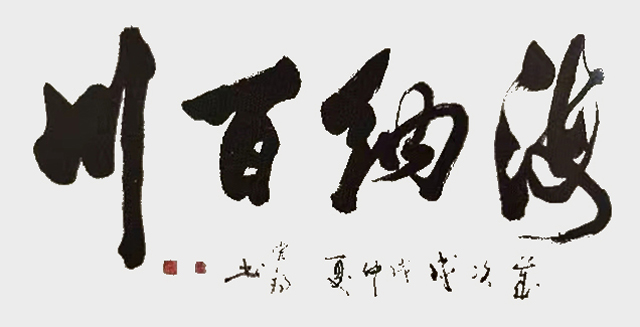 海纳百川
歲次戊戌仲夏
书